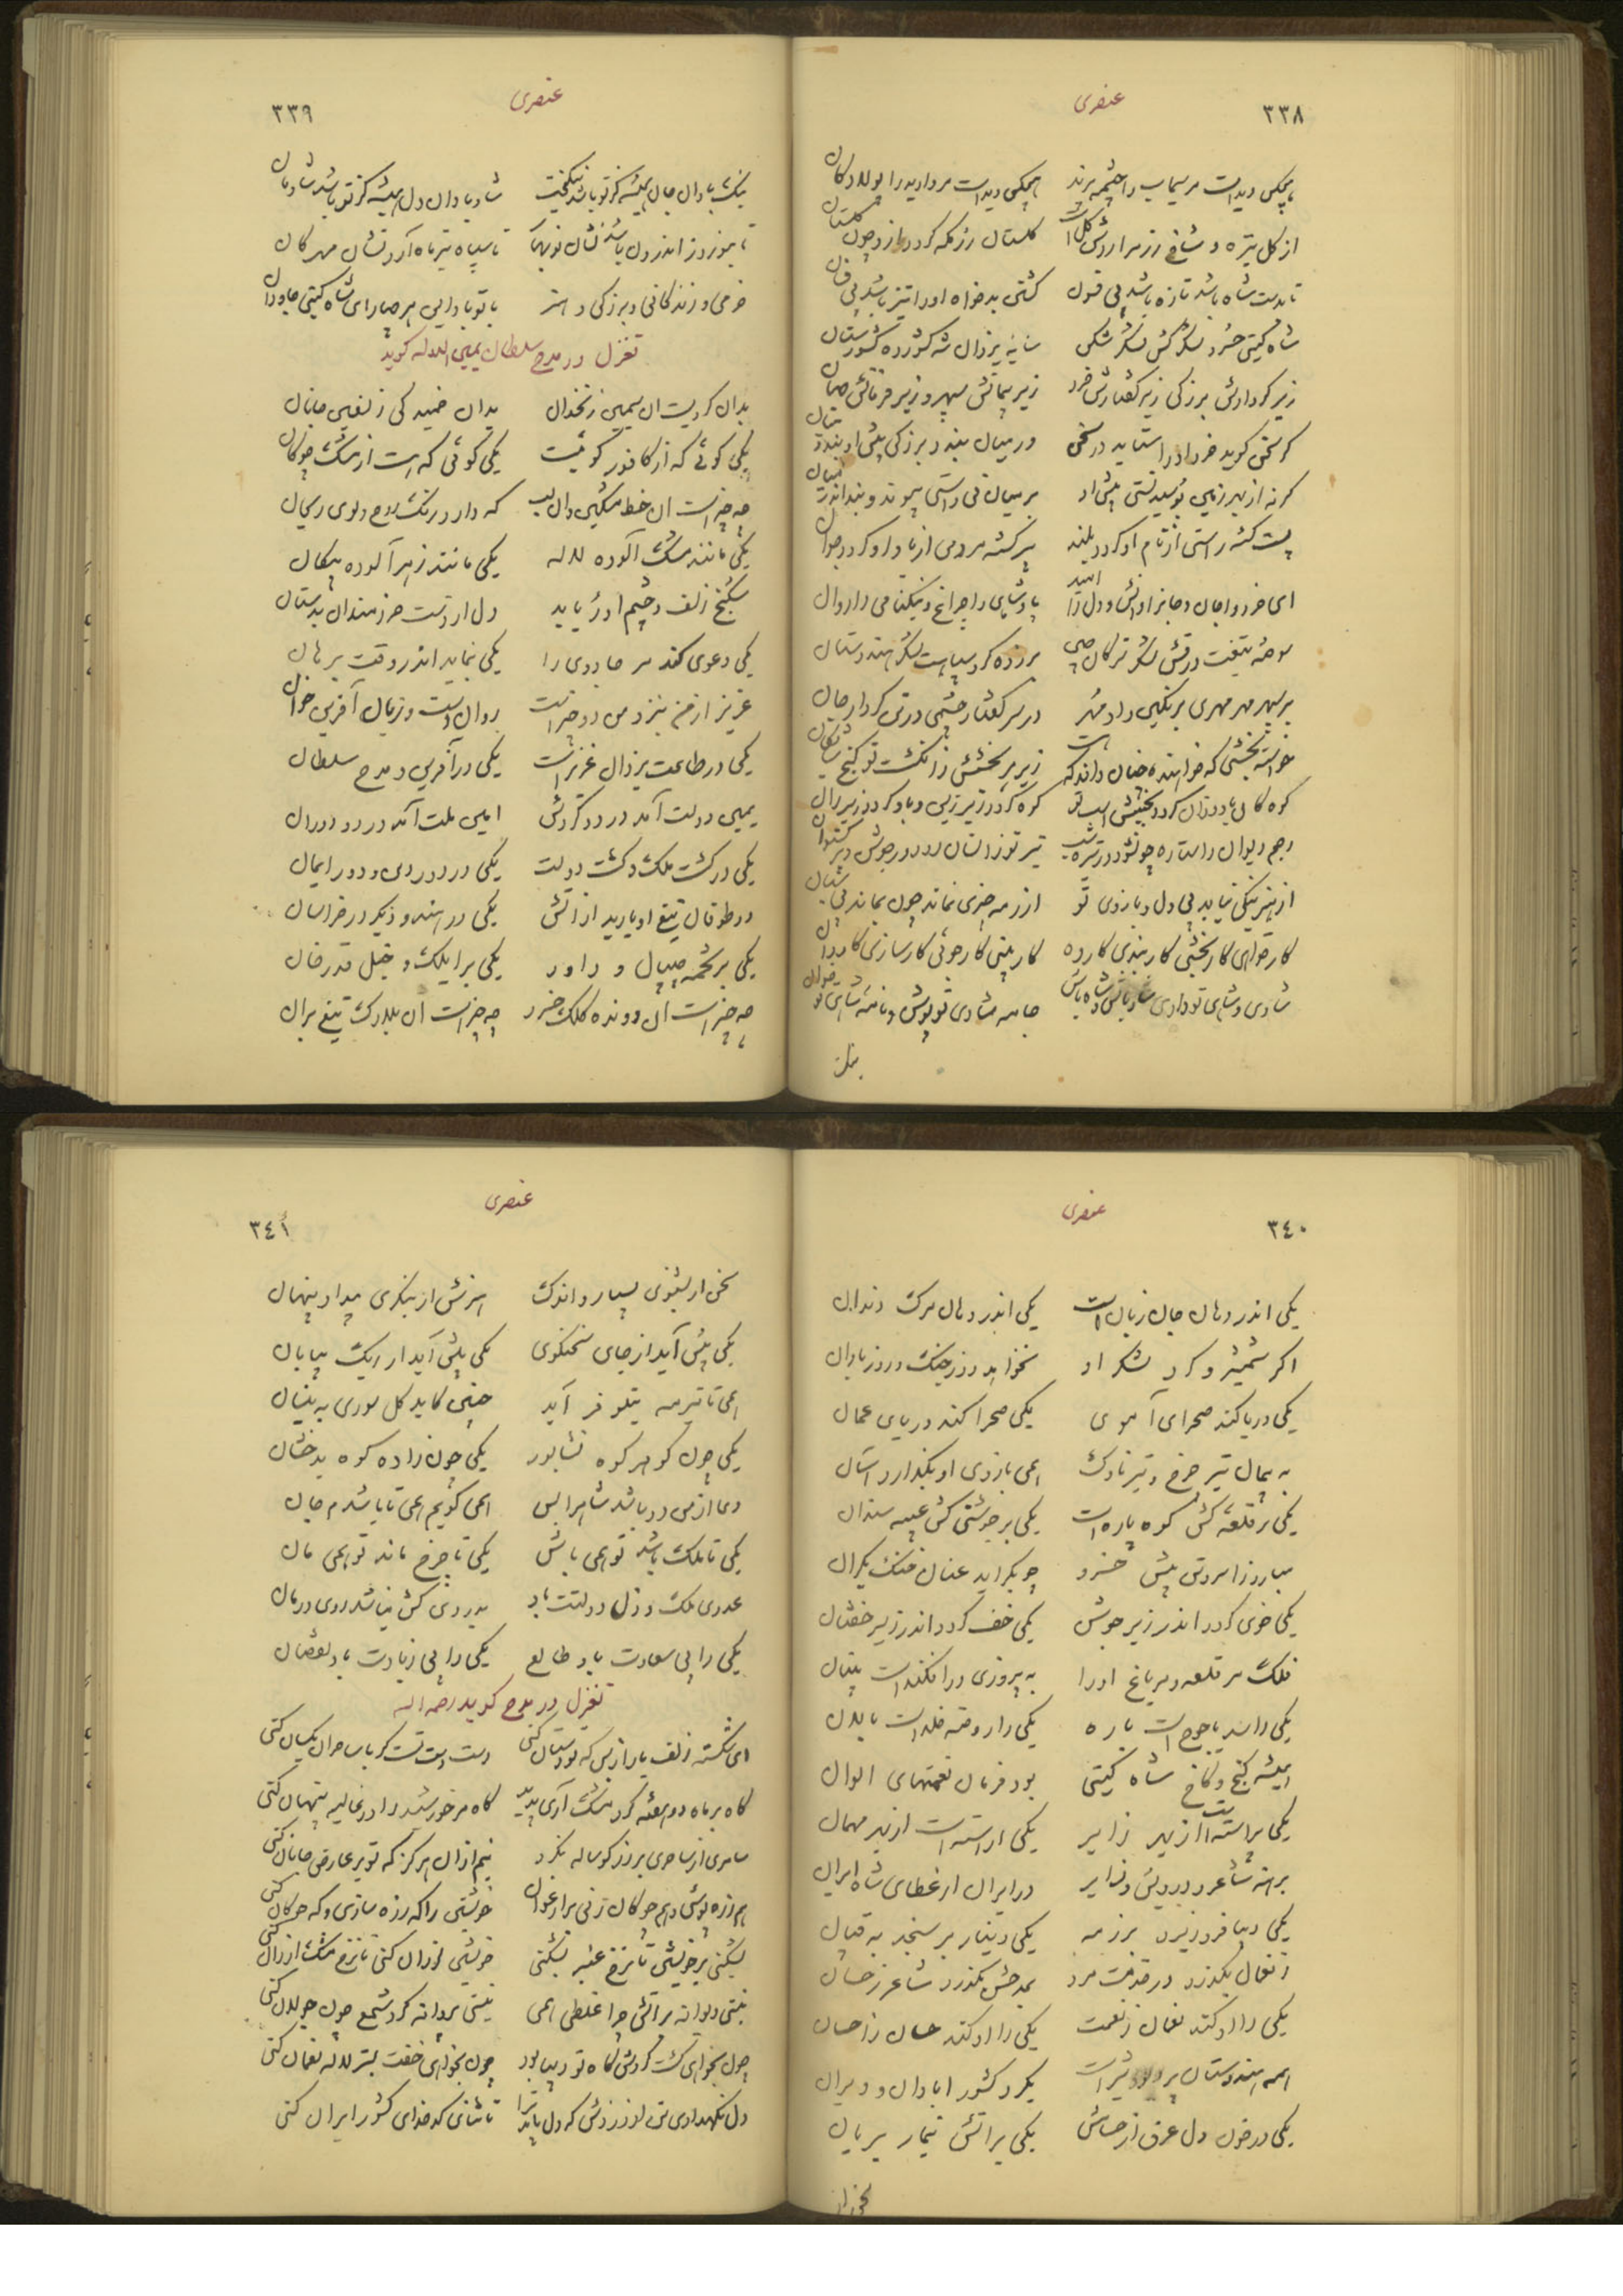 ۳۳۸
عنصری
هیچکس دیدست مر سیماب را چشمه پرند هیچکس دیدست مروارید را پولاد کان
از کل تیره و شاخ رز مر او را شکل است کلستان رزمکه کردد ازو چون کلستان
تا بدست شاه باشد تازه باشد بی فتون کشتی بدخواه او را تیز باشد بی فسان
شاه کیتی خسرو لشکر کش لشکر شکن سایه یزدان شه کشور ده کشور ستان
زیر کردارش بزرکی زیر کفتارش خرد زیر پیمانش سپهر و زیر فرمانش جهان
کر سخن کوید خرد او را ستاید در سخن ور میان بندد بزرکی پیش او بندد میان
کر نه از بهر زمین بوسیدنستی پیش او بر میان نی راستی پیوند و بند اندر میان
پست کشته راستی از نام او کردد بلند پیر کشته مردمی از یاد او کردد جوان
ای خرد را جان و جان را دانش و دل را امید پادشاهی را چراغ و نیکنامی را روان
سوخته تیغت درفش لشکر ترکان چین برزده کرد سپاهت لشکر هندوستان
بر سپهر مهر مهری بر نکین داد مهر در سر کفتار چشمی در تن کردار جان
کوه کان باد وزان کردد بجنبش اسب تو کوه کردد زیر زین و باد کردد زیر ران
از هنر نیکی نیاید بی دل و بازوی تو از زمه چیزی نماند چون بماند بی شبان
کار خواهی کار بخشی کار بندی کار ده کار بینی کار جوئی کار سازی کاردان
شادی و شاهی تو داری شاد باش و شاه باش جامه شادی تو پوش و نامه شاهی تو خوان
نیک
۳۳۹
عنصری
نیک بادا آن جان همیشه کز تو باشد نیکبخت شاد بادا آن دل همیشه کز تو باشد شادمان
تا بنوروز اندرون باشد نشان نوبهار تا سپاه تیر ماه آرد نشان مهرکان
خرمی و زندکانی و بزرکی و هنر با تو بادا این هر چهار ای شاه کیتی جاودان
تغزل در مدح سلطان یمین الدوله کوید
بدان کردیست آن سیمین زنخدان بدان خمیدکی زلفین جانان
یکی کوئی که از کافور کوئیست یکی کوئی که هست از مشک چوکان
چه چیزست آن خط مشکین و آن لب که دارد رنک روح و بوی ریحان
یکی مانند مشک آلوده لاله یکی مانند زهر آلوده پیکان
شکنج زلف و چشم او رباید دل از دست خردمندان بدستان
یکی دعوی کند مر جادوی را یکی بنماید اندر وقت برهان
عزیز از من بنزد من دو چیزست روان است و زبان آفرین خوان
یکی در طاعت یزدان عزیزست یکی در آفرین و مدح سلطان
یمین دولت آمد در دو کردش امین ملت آمد در دو دوران
یکی در کشت ملک و کشت دولت یکی در دور دین و دور ایمان
دو طوفان تیغ او بارید از آتش یکی در هند و دیکر در خراسان
یکی بر تخمه جیپال و داور یکی بر ایلک و خیل قدر خان
چه چیزست آن رونده کلک خسرو چه چیزست آن بلارک تیغ بران
۳٤۰
عنصری
یکی اندر دهان جان زبانست یکی اندر دهان مرک دندان
اکر شمشیر و کرد لشکر او نخواهد روز جنک و روز باران
یکی دریا کند صحرای آموی یکی صحرا کند دریای عمان
به پیمان تیر چرخ و تیر ناوک همی بازوی او بکذارد آسان
یکی بر قلعه کش کوه باره است یکی بر جوشنی کش عیبه سندان
مبارز را سر و تن پیش خسرو چو بکراید عنان خنک یکران
یکی خوی کردد اندر زیر جوشن یکی خف کردد اندر زیر خفتان
فلک مر قلعه و مر باغ او را به پیروزی درافکندست بنیان
یکی را سد یاجوج است باره یکی را روضه خلدست بالان
همیشه کنج و کاخ شاه کیتی بود فرمان نعمتهای الوان
یکی پیراسته است از بهر زایر یکی آراسته است از بهر مهمان
برهنه شاعر و درویش و زایر در ایران از عطای شاه ایران
یکی دیبا فرو ریزد برزمه یکی دینار برسنجد به قپان
ز نعمان بکذرد در خدمت مرد بمدحش بکذرد شاعر ز حسان
یکی را او کند نعمان ز نعمت یکی را او کند حسان ز احسان
همه هندوستان پر دود و تیرست یکرد کشور آبادان و ویران
یکی در خون دل غرق از حسامش یکی بر آتش تیمار بریان
سخن ار
۳٤۱
عنصری
سخن ار بشنوی بسیار و اندک هنرش ار بنکری پیدا و پنهان
یکی پیش آید از جای سخنکوی یکی بیش آید از ریک بیابان
همی تا تیرمه نیلوفر آید چنین کاید کل سوری به نیسان
یکی چون کوهر کوه نشابور یکی چون زاده کوه بدخشان
دعا از من دو باشد شاه را بس همی کویم همی تا باشدم جان
یکی تا ملک باشد تو همی باش یکی تا چرخ ماند تو همی مان
عدوی ملک و ذل دولتت باد بدردی کش نباشد روی درمان
یکی را بی سعادت باد طالع یکی را بی زیادت باد نقصان
تغزل در مدح کوید رحمه الله
ای شکسته زلف یار از بس که تو دستان کنی دست دست تست کر با ساحران یکسان کنی
کاه بر ماه دو هفته کرد مشک آری پدید کاه مر خورشید را در غالیه پنهان کنی
سامری از ساحری بر زر کوساله نکرد نیم از آن هرکز که تو بر عارض جانان کنی
هم زره پوشی و هم چوکان زنی بر ارغوان خویشتن را که زره سازی و که چوکان کنی
بشکنی بر خویشتن تا نرخ عنبر بشکنی خویشتن لرزان کنی تا نرخ مشک ارزان کنی
نیستی دیوانه بر آتش چرا غلطی همی نیستی پروانه کرد شمع چون جولان کنی
چون بخواهی کشت کردش کاه تو دیبا بود چون بخواهی خفت بستر لاله نعمان کنی
دل نکهدار ای تن از دردش که دل باید ترا تا ثنای کدخدای کشور ایران کنی